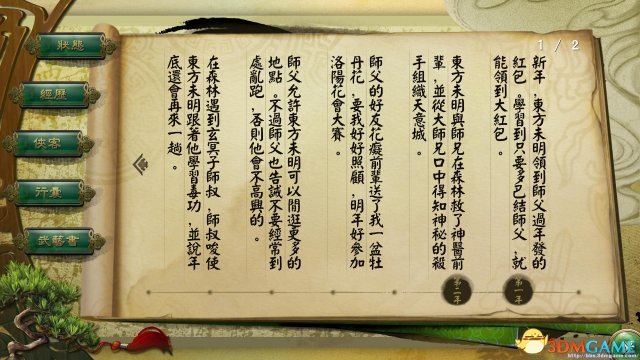 狀態
經歷
俠客
行囊
武藝書
1 / 2
新年，東方未明領到師父過年發的
紅包。學習到只要多巴結師父，就
能領到大紅包。
東方未明與師兄在森林救了神醫前
輩，並從大師兄口中得知神秘的殺
手組織天意城。
師父的好友花癡前輩送了我一盆牡
丹花，要我好好照顧，明年好參加
洛陽花會大賽。
師父允許東方未明可以閒逛更多的
地點。不過師父也告誡不要經常到
處亂跑，否則他會不高興的。
在森林遇到玄冥子師叔，師叔唆使
東方未明跟著他學習毒功，並說年
底還會再來一趟。
第一年
第二年
3DMGAME
http://bbs.3dmgame.com